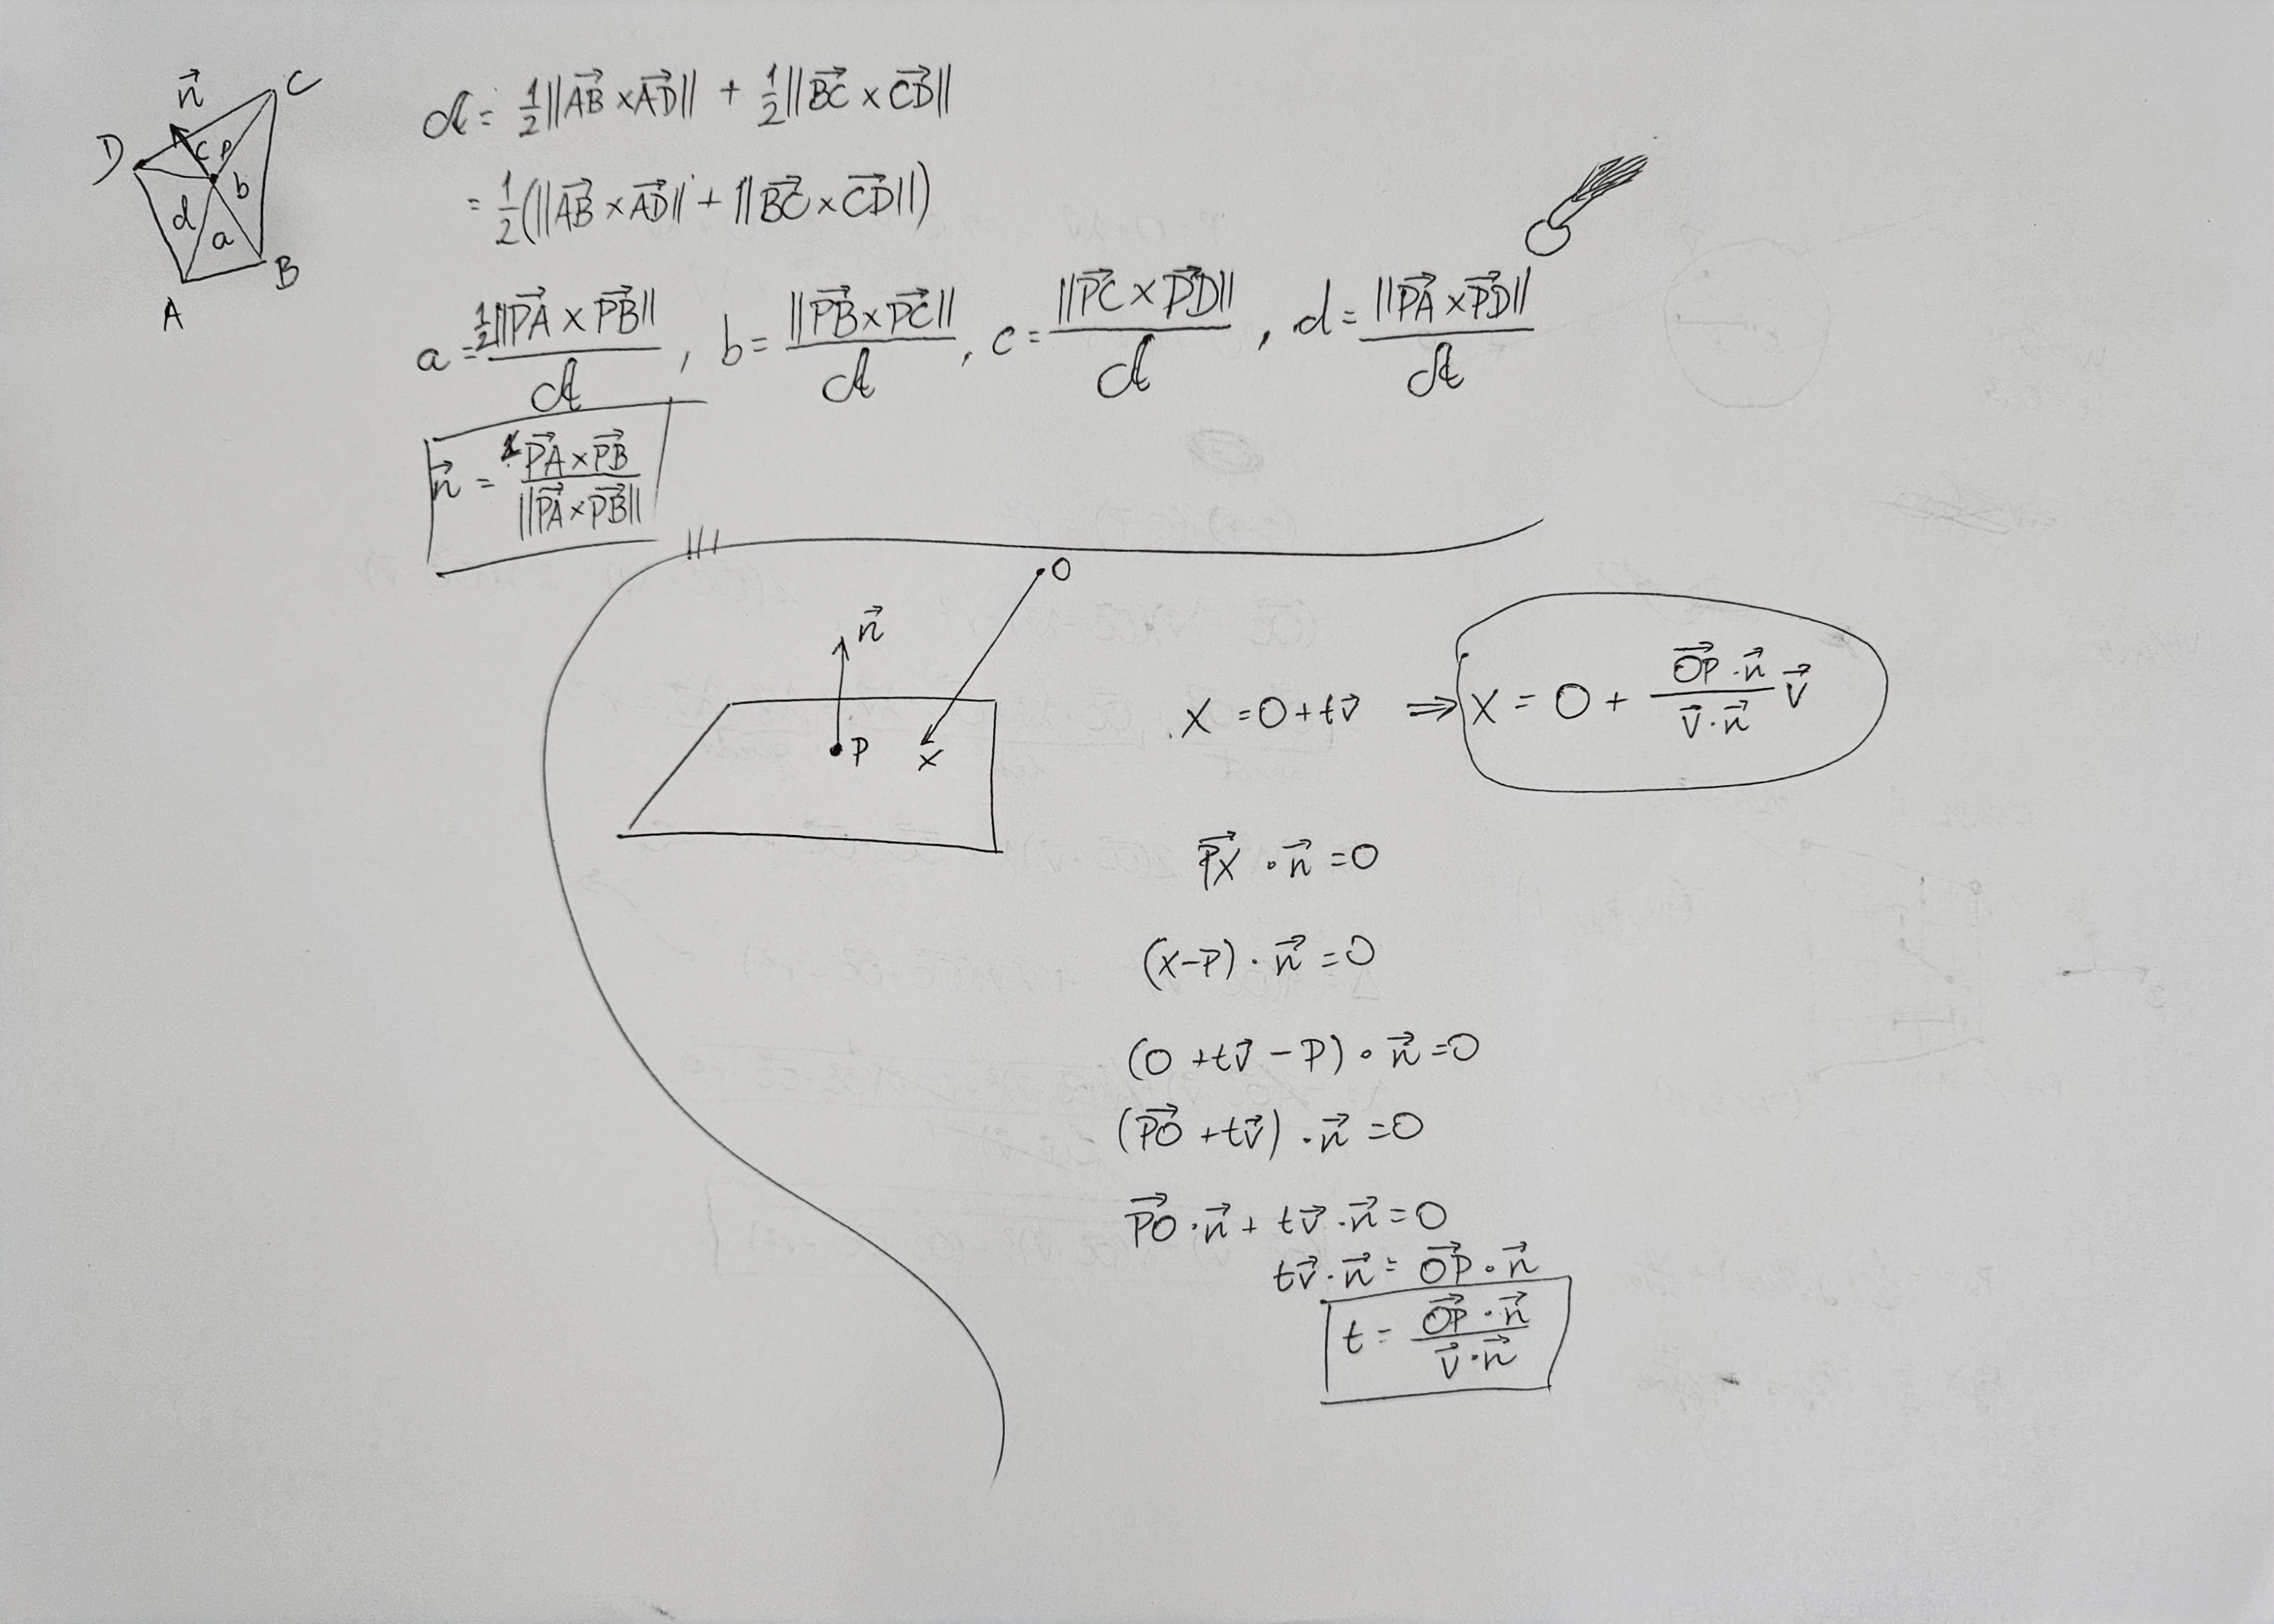 n⃗
C
D
c P
b
d
a
B
A
𝒜 = ½||AB⃗ × AD⃗|| + ½||BC⃗ × CD⃗||
= ½(||AB⃗ × AD⃗|| + ||BC⃗ × CD⃗||)
a = ½||PA⃗ × PB⃗|| / 𝒜 , b = ||PB⃗ × PC⃗|| / 𝒜 , c = ||PC⃗ × PD⃗|| / 𝒜 , d = ||PA⃗ × PD⃗|| / 𝒜
n⃗ = PA⃗ × PB⃗ / ||PA⃗ × PB⃗||
O
n⃗
P
X
X = O + tv⃗ ⇒ X = O + (OP⃗ · n⃗ / v⃗ · n⃗) v⃗
PX⃗ · n⃗ = 0
(X - P) · n⃗ = 0
(O + tv⃗ - P) · n⃗ = 0
(PO⃗ + tv⃗) · n⃗ = 0
PO⃗ · n⃗ + tv⃗ · n⃗ = 0
tv⃗ · n⃗ = OP⃗ · n⃗
t = OP⃗ · n⃗ / v⃗ · n⃗